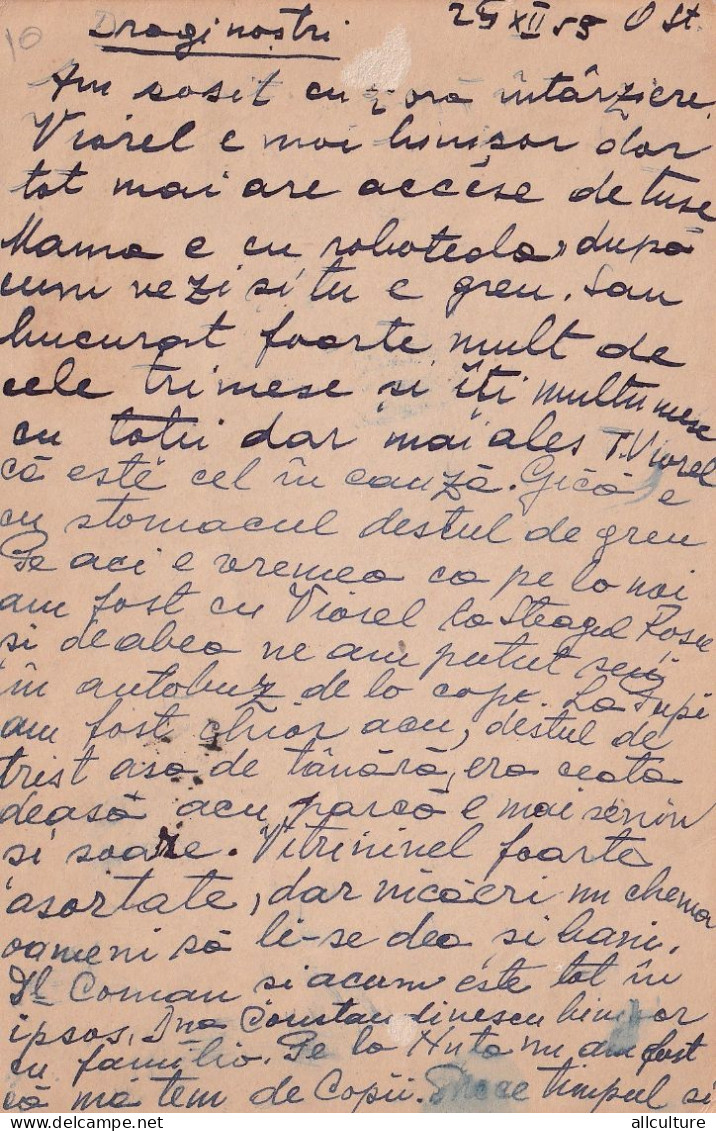 10 Dragi noștri 25 XII 59 O St.
Am sosit cu 1 oră întârziere.
Viorel e mai binișor dar
tot mai are accese de tuse
Mama e cu roboteala, după
cum vezi și tu e greu. Sau
bucurat foarte mult de
cele trimese și îți multumesc
cu totii dar mai ales T. Viorel
că este cel în cauză. Gică e
cu stomacul destul de greu
Pe aci e vremea ca pe la noi
am fost cu Viorel la Steagul Roșu
și deabea ne am putut sui
în autobuz de la cap. La
am fost chiar acu, destul de
trist asa de tânără, era ceata
deasă acu parcă e mai senin
și soare. Vitrinine foarte
asortate, dar nicăeri nu chema
oameni să li-se dea și bani.
Dl Coman si acum este tot în
ipsos, Dna Constandinescu binișor
cu familia. Pe la Nuta nu am fost
că mă tem de Copii. Trece timpul si